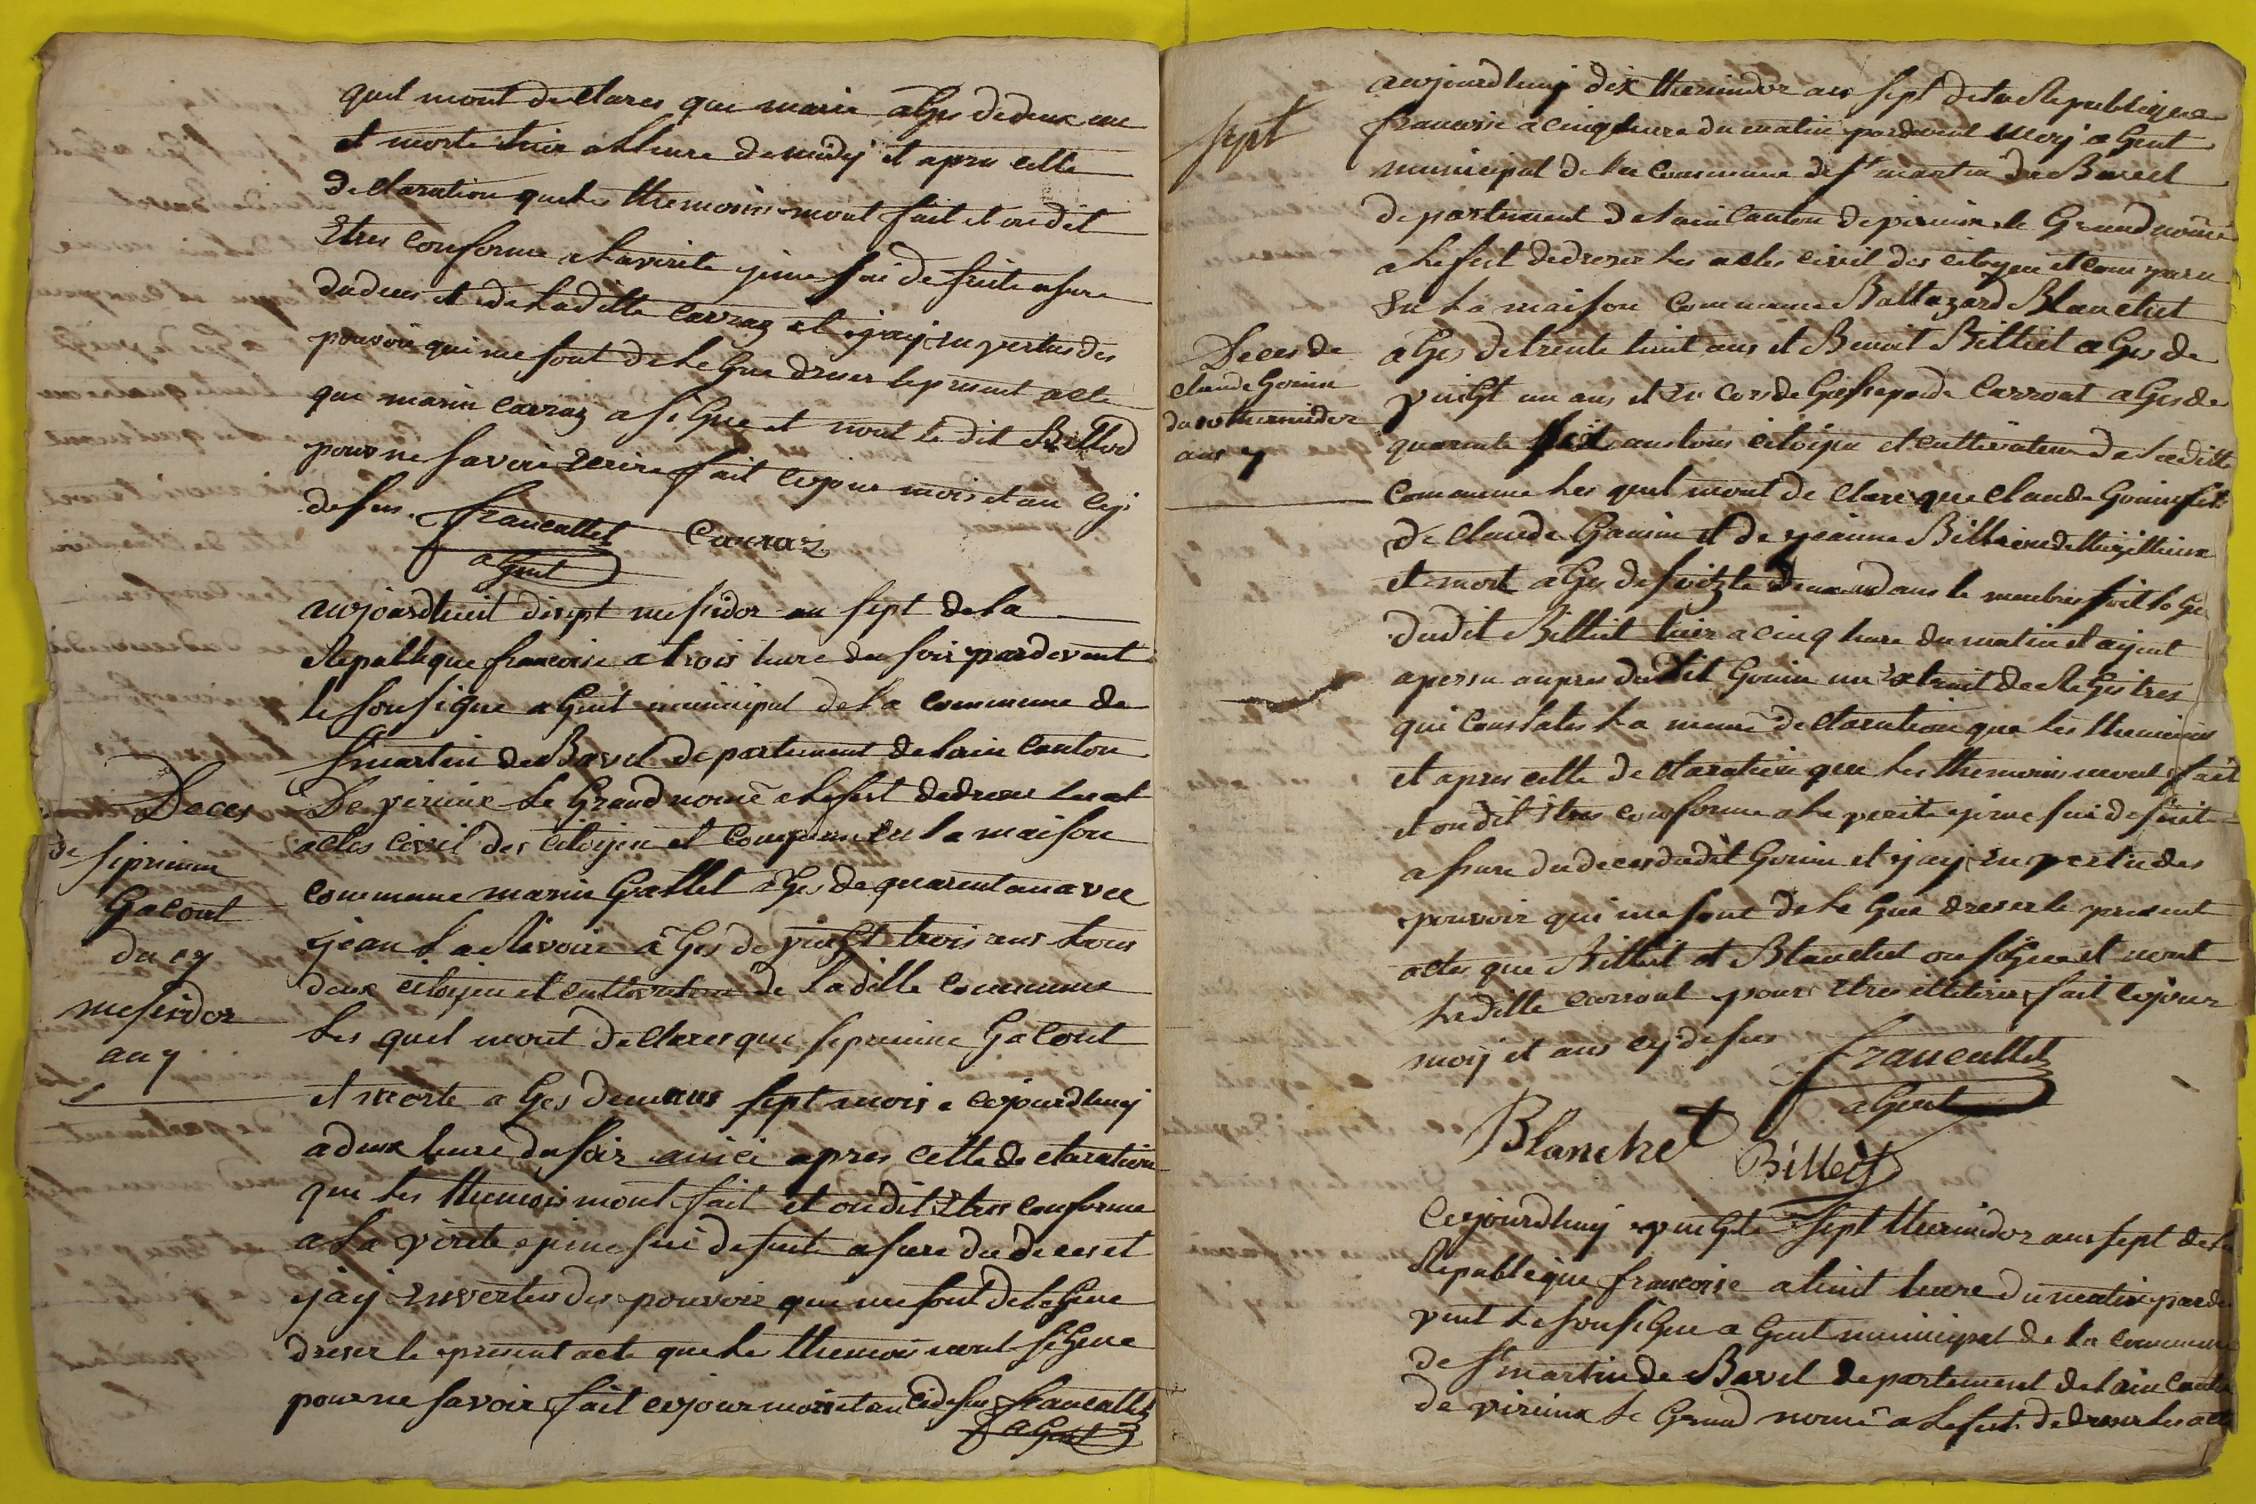 quil mont declares que marie ages de deux an
et morte hier a lheure de midy et apres cette
declaration que les themoins mont fait et on dit
Etres conforme a la verite je me sui de suite asure
du deces et de la ditte carraz et jay en vertus des
pouvoir qui me sont delegue dresser le present acte
que marin carraz a signe et nont le dit Billiod
pour ne savoir ecrire fait ce jour mois et an cy
desus. francallet Carraz
agent
aujourdhuit disept mesidor an sept de la
Republique francoise a trois heure du soir pardevant
le sousigne agent municipal de la commune de
St martin de Bavel departement de lain canton
Deces
De virieux le Grand nomé a lefest de dresser les
de
actes civil des citoyen et comparu en la maison
seprienne
commune marin Gallet ages de quarent an avec
Gacont
jean Larivoire âges de vinght trois ans tous
du 17
deux citoyen et cultivateur de la ditte commune
mesidor
les quel mont declares que seprienne Gacont
an 7
et morte ages de sept mois ce jourdhuy
a deux heure du soir ainci apres cette declaration
que les themois mont fait et on dit Etres conforme
a la verite je me sui de suite asure du deces et
jay en vertus des pouvoir qui me sont delegue
dreser le present acte que le themois nont signe
pour ne savoir fait ce jour mois et an ci desus francallet
agent
aujourdhuy dix thermidor an sept de la Republique
sept
francoise a cinq heure du matin pardevant moy agent
municipal de la commune de St martin de Bavel
departement de lain canton de virieux le Grand nomé
a lefest de dreser les actes civil des citoyen et comparu
En la maison commune Baltazard Blanchet
Deces de
ages de trente huit ans et Benoit Billiet ages de
claude Gonin
vinght un ans et carront ages de
du 10 thermidor
quarante ans tous citoyen et cultivateur de la ditte
an 7
commune les quel mont declare que claude Gonin fils
de claude Gonin et de jeanne
et mort ages de dans le
du dit Billiet hier a cinq heure du matin et ayent
apersu aupres du dit Gonin un Extrait de Registres
qui constates la meme declaration que les themoins
et apres cette declaration que les themoins mont fait
et on dit Etres conforme a la verite je me sui de suit
assure du deces du dit Gonin et jay en vertu des
pouvoir qui me sont delegue dreser le present
actes que Billiet et Blanchet on signe et nont
la ditte carront pour Etres fait ce jour
moy et ans cy desus francallet
agent
Blanchet Billiet
Ce jourdhuy vinghte sept thermidor ans sept de la
Republique francoise a huit heure du matin parde
vent le sousigne agent municipal de la commune
de St martin de Bavel departement de lain canton
de virieux le Grand nomé a lefest de dreser les acte